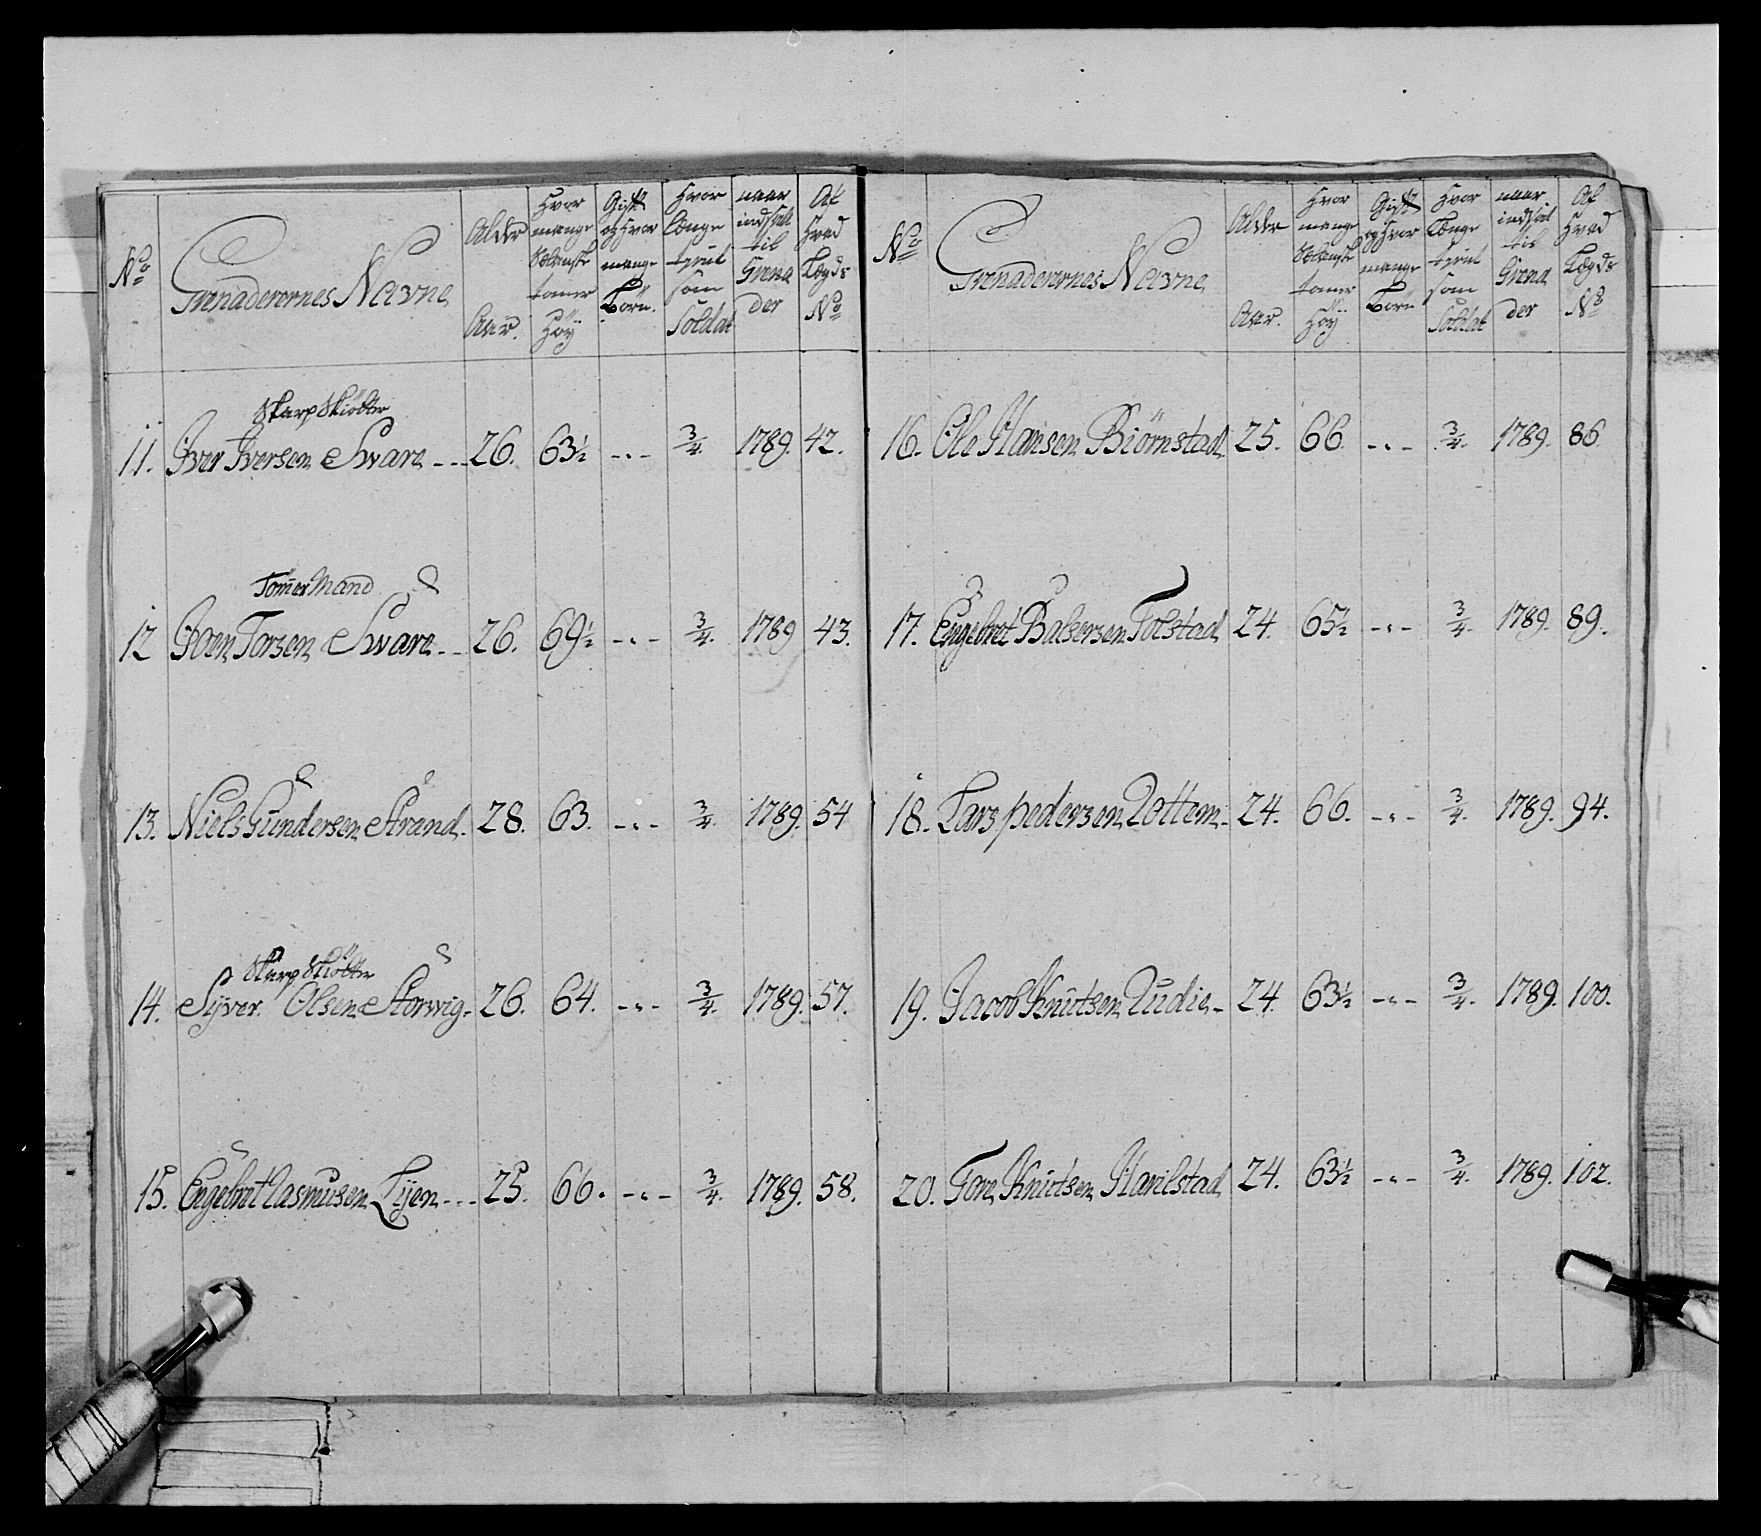 No
Grenaderernes Nafne
Alder
Aar.
Hvor
mange
Siælandske
tomer
Höÿ
Gift
og Hvor
mange
Börn.
Hvor
Længe
tient
som
Soldat
naar
indsadt
til
Grena
der
Af
Hvad
Lægds
No
11. Skarp Skiötter
Iver Iversen Sware --- 26. 63½ --- ¾. 1789. 42.
Tomer Mand
12 Joen Torsen Sware -- 26. 69½ --- ¾. 1789 43.
13. Niels Gundersen Strand. 28. 63. --- ¾. 1789. 54
Skarp Skiötter
14. Syver Olsen Storvig. 26. 64. --- ¾. 1789. 57.
15. Engebret Rasmusen Lÿen --- 25. 66. --- ¾. 1789. 58.
No
Grenaderernes Nafne
Alder
Aar.
Hvor
mange
Siælandske
tomer
Höÿ
Gift
og Hvor
mange
Börn
Hvor
Længe
tient
som
Soldat
naar
indsat
til
Grena
der
Af
Hvad
Lægds
No
16. Ole Hansen Biörnstad 25. 66. --- ¾. 1789. 86
17. Engebret Balsersen Tolstad 24. 65½ --- ¾. 1789. 89.
18. Lars pedersen Tottem - 24. 66. --- ¾. 1789. 94.
19. Jacob Knutsen - 24. 63½ --- ¾. 1789. 100.
20. Tore Knutsen Harilstad 24. 63½ --- ¾. 1789. 102.